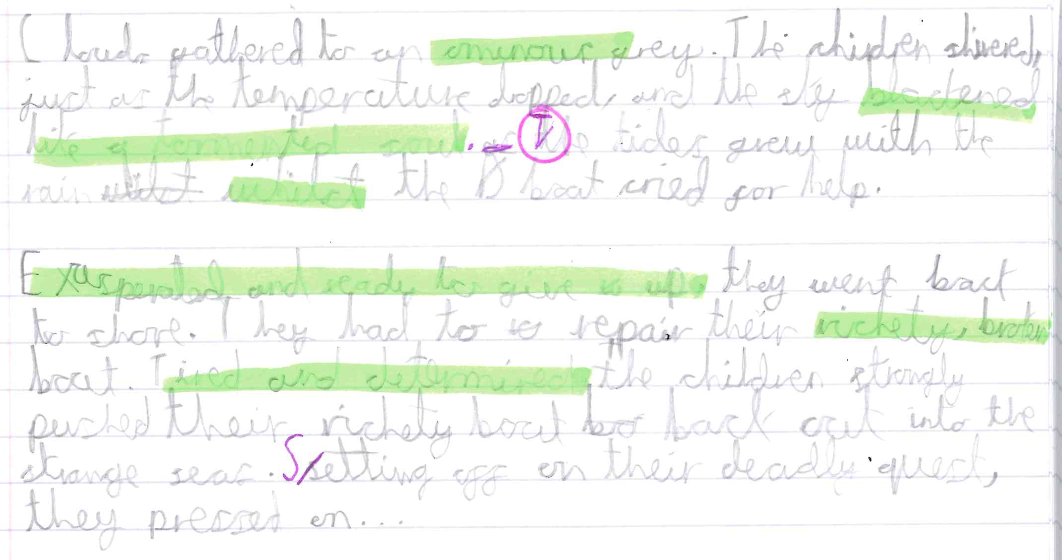 Clouds gathered to an ominous grey. The children shivered,
just as the temperature dopped, and the sky blackened
like a tormented soul. The tides grew with the
rain whilst the B boat cried for help.
Exasperated and ready to give up, they went back
to shore. They had to repair their rickety, broken
boat. Tired and determined, the children strongly
pushed their rickety boat back out into the
strange seas. Setting off on their deadly quest,
they pressed on...